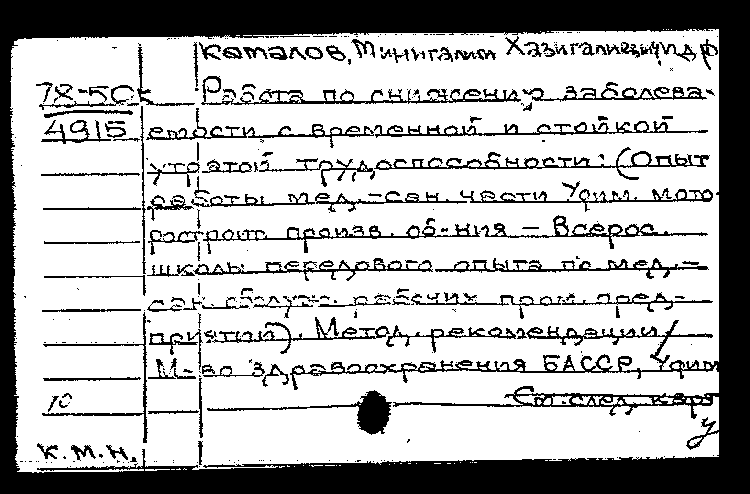 Камалов, Мингалим Хазигалиевич и др
78-5С Работа по снижению заболева-
4915 емости с временной и стойкой
утратой трудоспособности: (Опыт
работы мед.-сан. части Уфим. мото-
ростроит произв. об-ния – Всерос.
школы передового опыта по мед.-
сан. обслуж. рабочих пром. пред-
приятий). Метод. рекомендации /
М-во здравоохранения БАССР, Уфим
10 См. след. карт
К.М.Н. у